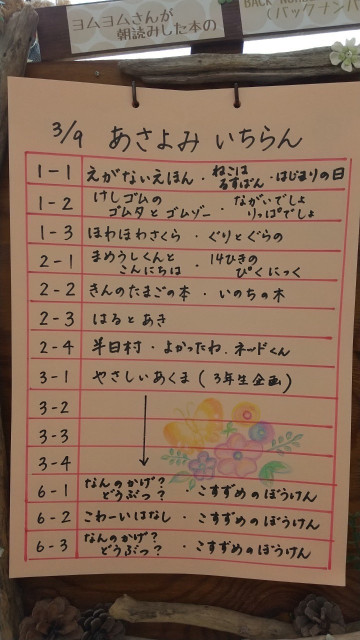 ヨムヨムさんが
朝読みした本の
BACK NUMBER
(バックナンバ
3/9 あさよみ いちらん
1-1 えがないえほん・ねこはるすばん・はじまりの日
1-2 けしゴムのゴムタとゴムゾー・ながいでしょりっぱでしょ
1-3 ほわほわさくら・ぐりとぐらの
2-1 まめうしくんとこんにちは・14ひきのぴくにっく
2-2 きんのたまごの本・いのちの木
2-3 はるとあき
2-4 半日村・よかったね.ネッドくん
3-1 やさしいあくま(3年生企画)
3-2
3-3
3-4
6-1 なんのかげ?どうぶつ?・こすずめのぼうけん
6-2 こわーいはなし・こすずめのぼうけん
6-3 なんのかげ?どうぶつ?・こすずめのぼうけん